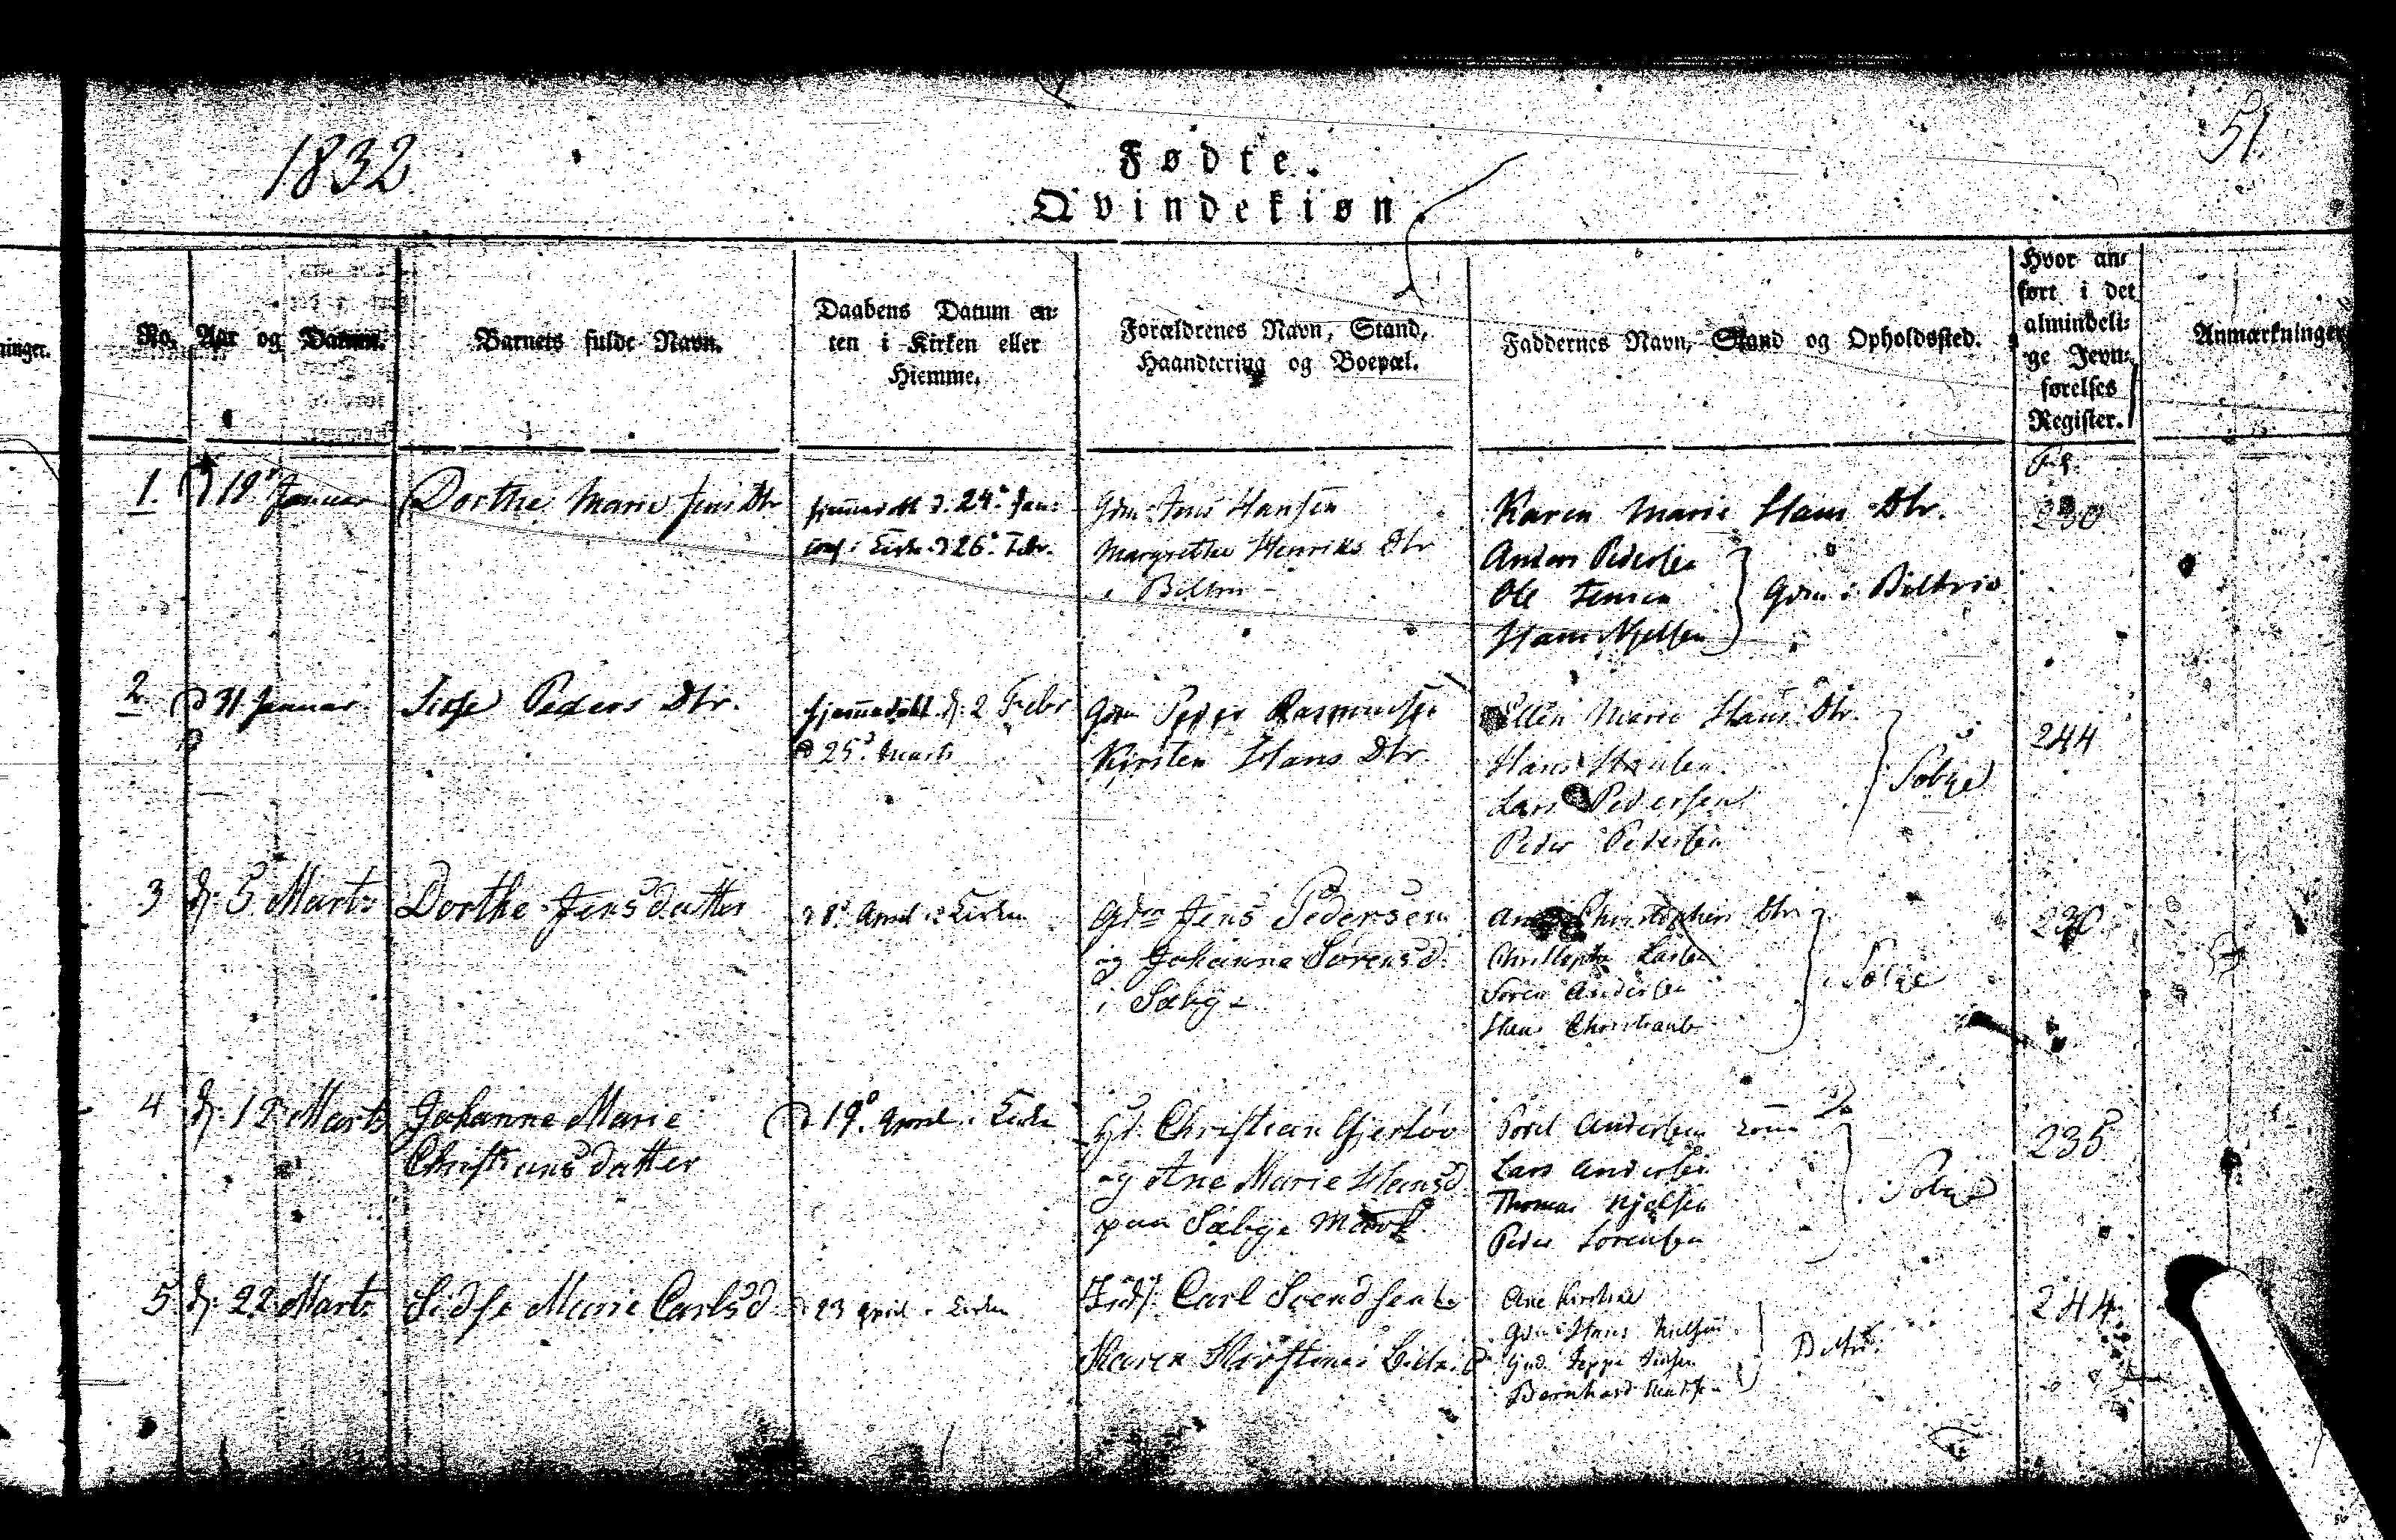 1832
51.
Fødte.
Qvindekiøn.
ninger.
No.
Aar og Datum.
Barnets fulde Navn.
Daabens Datum en-
ten i Kirken eller
Hiemme.
Forældrenes Navn, Stand,
Haandtering og Boepæl.
Faddernes Navn, Stand og Opholdssted.
Hvor an-
ført i det
almindeli-
ge Jevn-
førelses
Register.
Anmærkninger
1.
d 19. Januar
Dorthe Marie Jens Dtr
hjemmedøbt d. 24. Jan:
i Kirke d 26. Febr.
Gdm Jens Hansen
Margrethe Henriks Dtr
i
Karen Marie Hans Dtr.
Anders Pedersen
Ole Jensen
Hans Njelsen
Gdm i
230
2
d 31 Januar
Sidse Peders Dtr.
hjemmedøbt d. 2 Febr
d 25. Marts
Gdm Peder Rasmussen
Kirsten Hans Dtr.
Ellen Marie Hans Dtr.
Hans Hansen
Lars Pedersen
Peder Pedersen
Sæbye
244
3
d. 5 Marts
Dorthe Jensdatter
d 8. April i Kirken
Gdm Jens Pedersen
og Johanne Sørensd.
i Sæbye
Christophers Dtr.
Christopher Larsen
Søren Andersen
Sæbye
230
4
d. 12 Marts
Johanne Marie
Christiansdatter
d 19. April i Kirke
Christian Gjerløv
og Ane Marie Hansd
paa Sæbye Mark
Andersen
Lars Andersen
Thomas Njelsen
Peder Sørensen
Sæbye
235
5
d. 22 Marts
Sidse Marie Carlsd
d 23 April i Kirken
Inds. Carl Svendsen
Maren Kirstine
Ane Kirstine
Gdm Hans Nielsen
Jeppe Jensen
Bernhard
244